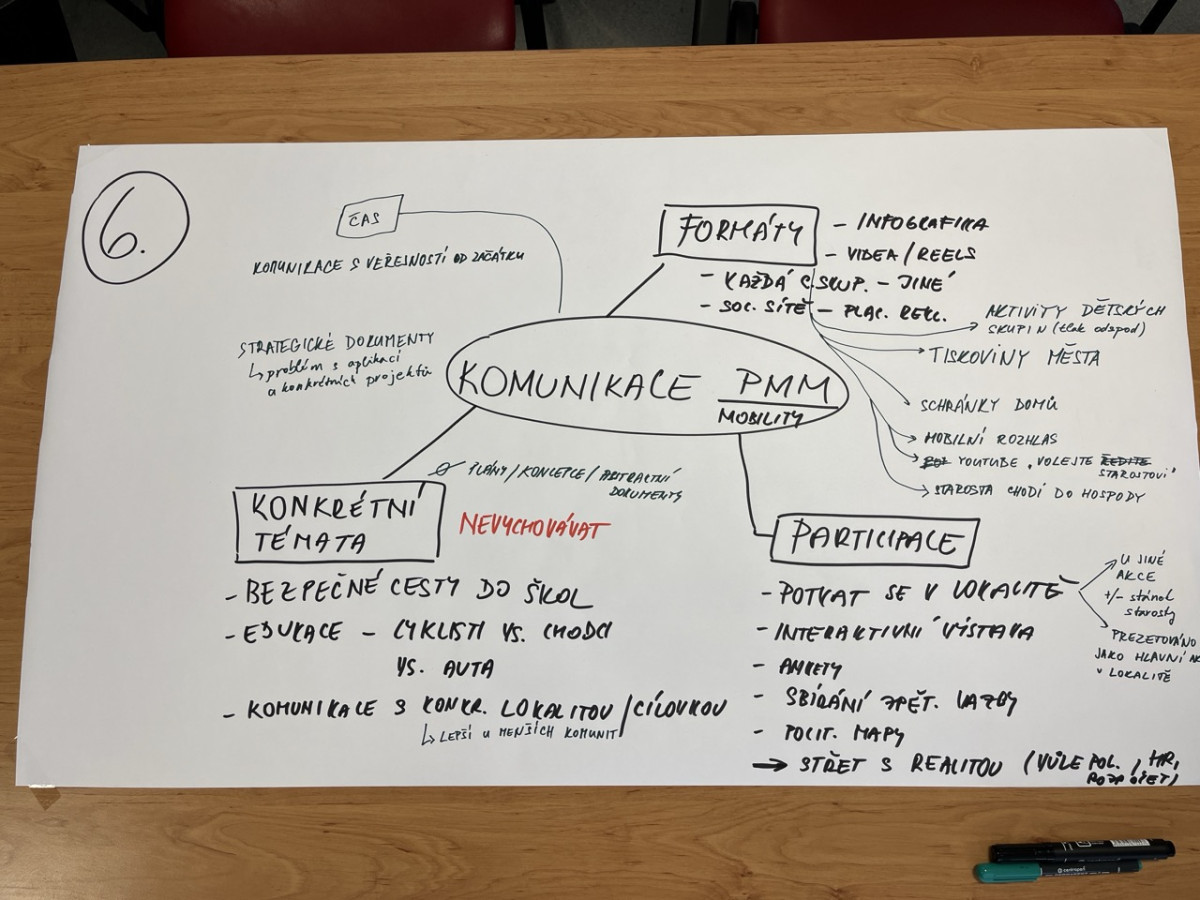 6.
ČAS
KOMUNIKACE S VEŘEJNOSTÍ OD ZAČÁTKU
STRATEGICKÉ DOKUMENTY
↳ problém s aplikací
a konkrétních projektů
FORMÁTY
- INFOGRAFIKA
- VIDEA/REELS
- KAŽDÁ C.SKUP. - JINÉ
- SOC. SÍTĚ - PLAC. REKL.
AKTIVITY DĚTSKÝCH
SKUPIN (tlak odspod)
TISKOVINY MĚSTA
SCHRÁNKY DOMŮ
MOBILNÍ ROZHLAS
YOUTUBE „VOLEJTE ŘEDITE
STAROSTOVI"
STAROSTA CHODÍ DO HOSPODY
KOMUNIKACE PMM
MOBILITY
KONKRÉTNÍ
TÉMATA
PLÁNY/KONCEPCE/ABSTRAKTNÍ
DOKUMENTY
NEVYCHOVÁVAT
- BEZPEČNÉ CESTY DO ŠKOL
- EDUKACE - CYKLISTI VS. CHODCI
VS. AUTA
- KOMUNIKACE S KONKR. LOKALITOU/CÍLOVKOU
↳ LEPŠÍ U MENŠÍCH KOMUNIT
PARTICIPACE
- POTKAT SE V LOKALITĚ
U JINÉ
AKCE
+/- stánek
starosty
PREZETOVÁNO
JAKO HLAVNÍ AK
V LOKALITĚ
- INTERAKTIVNÍ VÝSTAVA
- ANKETY
- SBÍRÁNÍ ZPĚT. VAZBY
- POCIT. MAPY
→ STŘET S REALITOU (VŮLE POL., HR,
ROZPOČET)
centropen